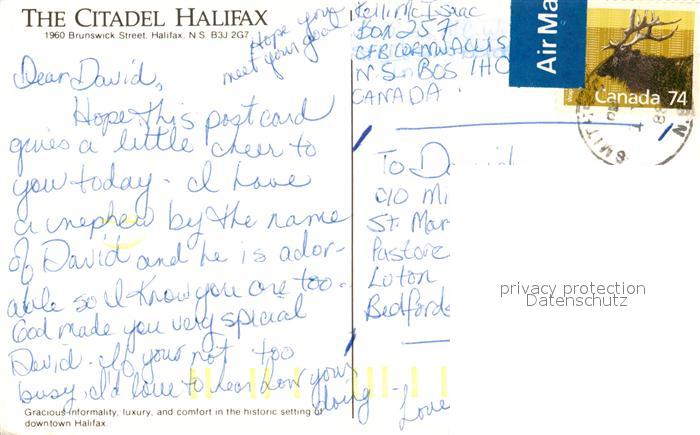 THE CITADEL HALIFAX
1960 Brunswick Street, Halifax, N.S. B3J 2G7
Hope you
meet your goal
Dear David,
Hope this postcard
gives a little cheer to
you today. I have
a nephew by the name
of David and he is ador-
able so I know you are too.
God made you very special
David. If your not too
busy, I'd love to hear how your
doing - Love
Gracious informality, luxury, and comfort in the historic setting of
downtown Halifax.
Kelli McIsaac
BOX 257
CFB CORNWALLIS
N.S. BOS 1H0
CANADA
Air Ma
Canada 74
SMITH
To D
c/o Mi
St. Mar
Pastore
Luton
Bedfords
privacy protection
Datenschutz